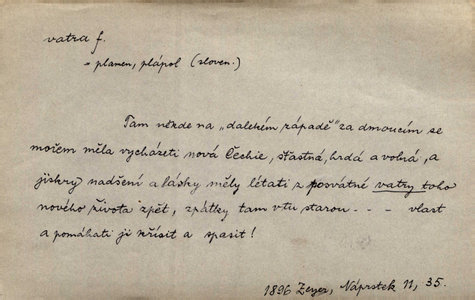 vatra f.
= plamen, plápol (sloven.)
Tam někde na „dalekém západě" za dmoucím se
mořem měla vycházeti nová Čechie, šťastná, hrdá a volná, a
jiskry nadšení a lásky měly létati z posvátné vatry toho
nového života zpět, zpátky tam v tu starou - - - vlast
a pomáhati ji křísit a spasit!
1896 Zeyer, Náprstek 11, 35.